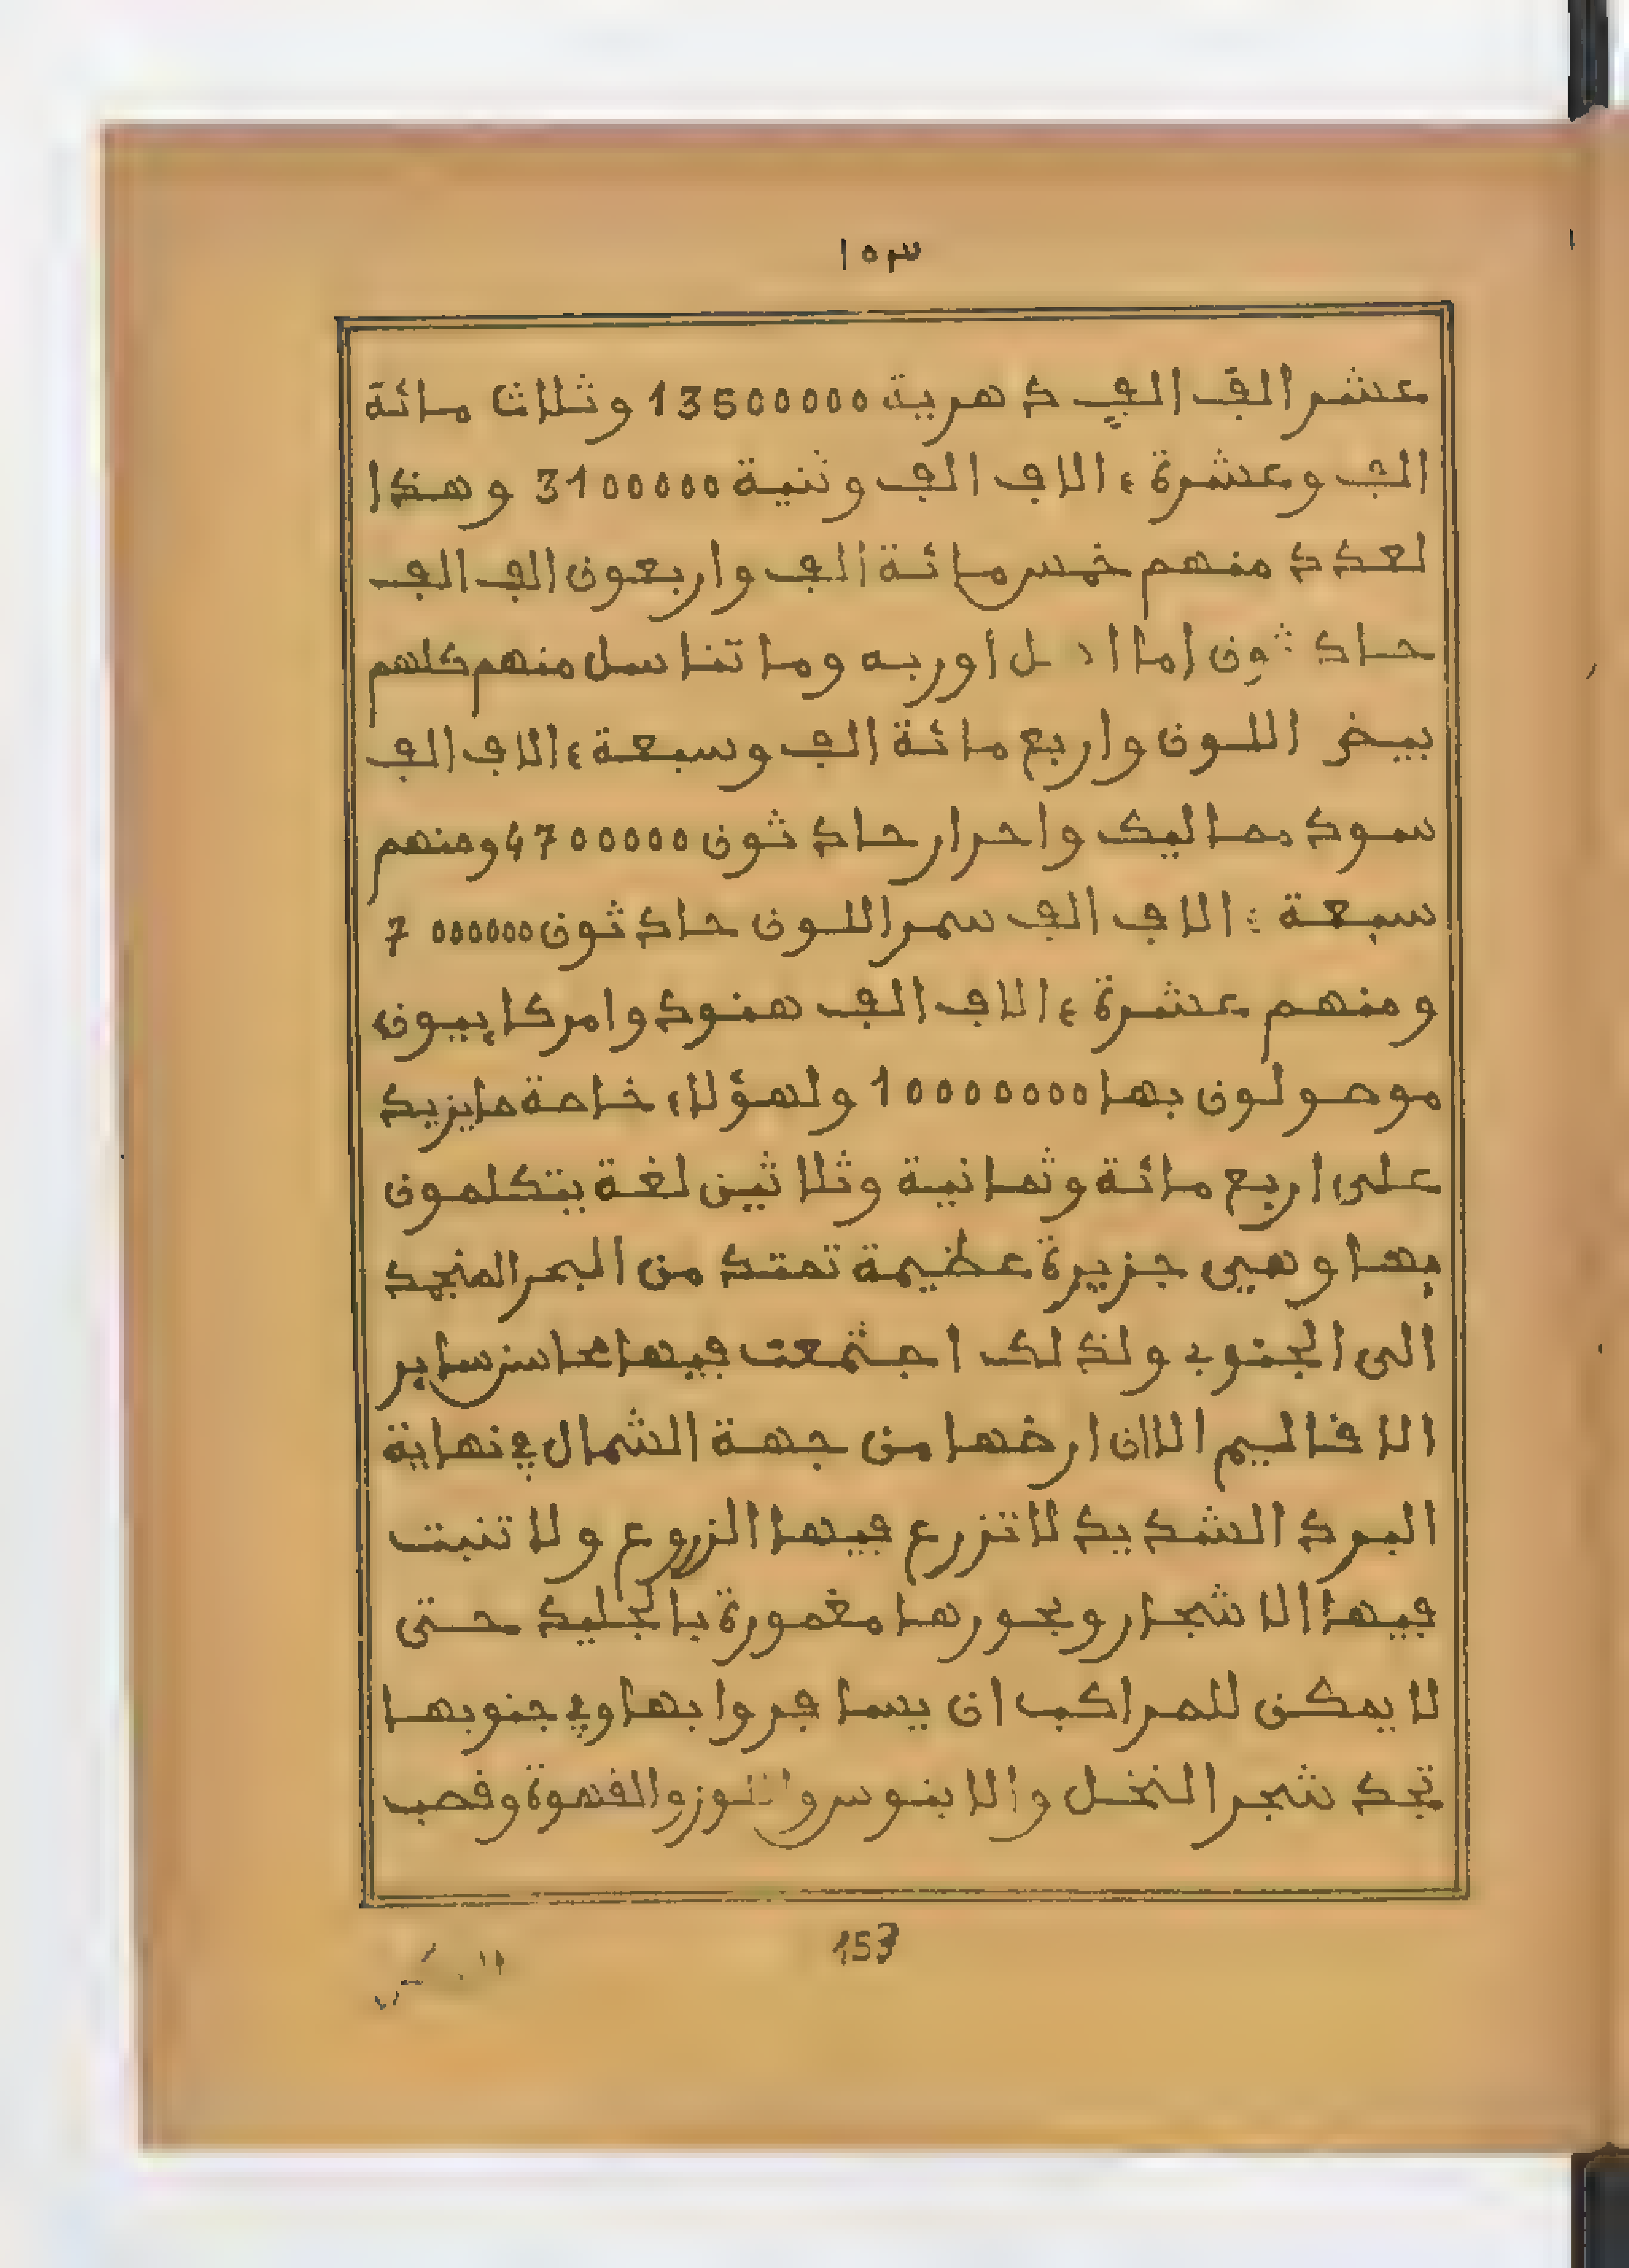 ١٥٣
عشر الف الف دهرية 13500000 وثلاث مائة
الف وعشرة ءالاف الف وثنية 3100000 وهذا
لعدد منهم خمس مائة الف واربعون الف الف
حادثون اما اوربه وما تناسل منهم كلهم
بيض اللون واربع مائة الف وسبعة ءالاف الف
سود مماليك واحرار حادثون 4700000 ومنهم
سبعة ءالاف الف سمر اللون حادثون 7000000
ومنهم عشرة ءالاف الف هنود وامركاييون
موصولون بها 10000000 ولهؤلاء خاصة ما يزيد
على اربع مائة وثمانية وثلاثين لغة يتكلمون
بها وهي جزيرة عظيمة تمتد من البحر المنجمد
الى الجنوب ولذلك اجتمعت فيها محاسن ساير
الاقاليم الاان ارضها من جهة الشمال في نهاية
البرد الشديد لا تزرع فيها الزروع ولا تنبت
فيها الاشجار وبحورها مغمورة بالجليد حتى
لا يمكن للمراكب ان يسافروا بها وفي جنوبها
تجد شجر النخل والابنوس والقهوة وقصب
153